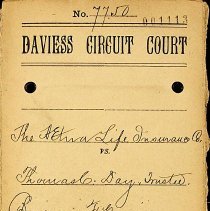 No. 7750 001113
DAVIESS CIRCUIT COURT
The Aetna Life Insurance Co.
VS.
Thomas C. Day, Trustee.